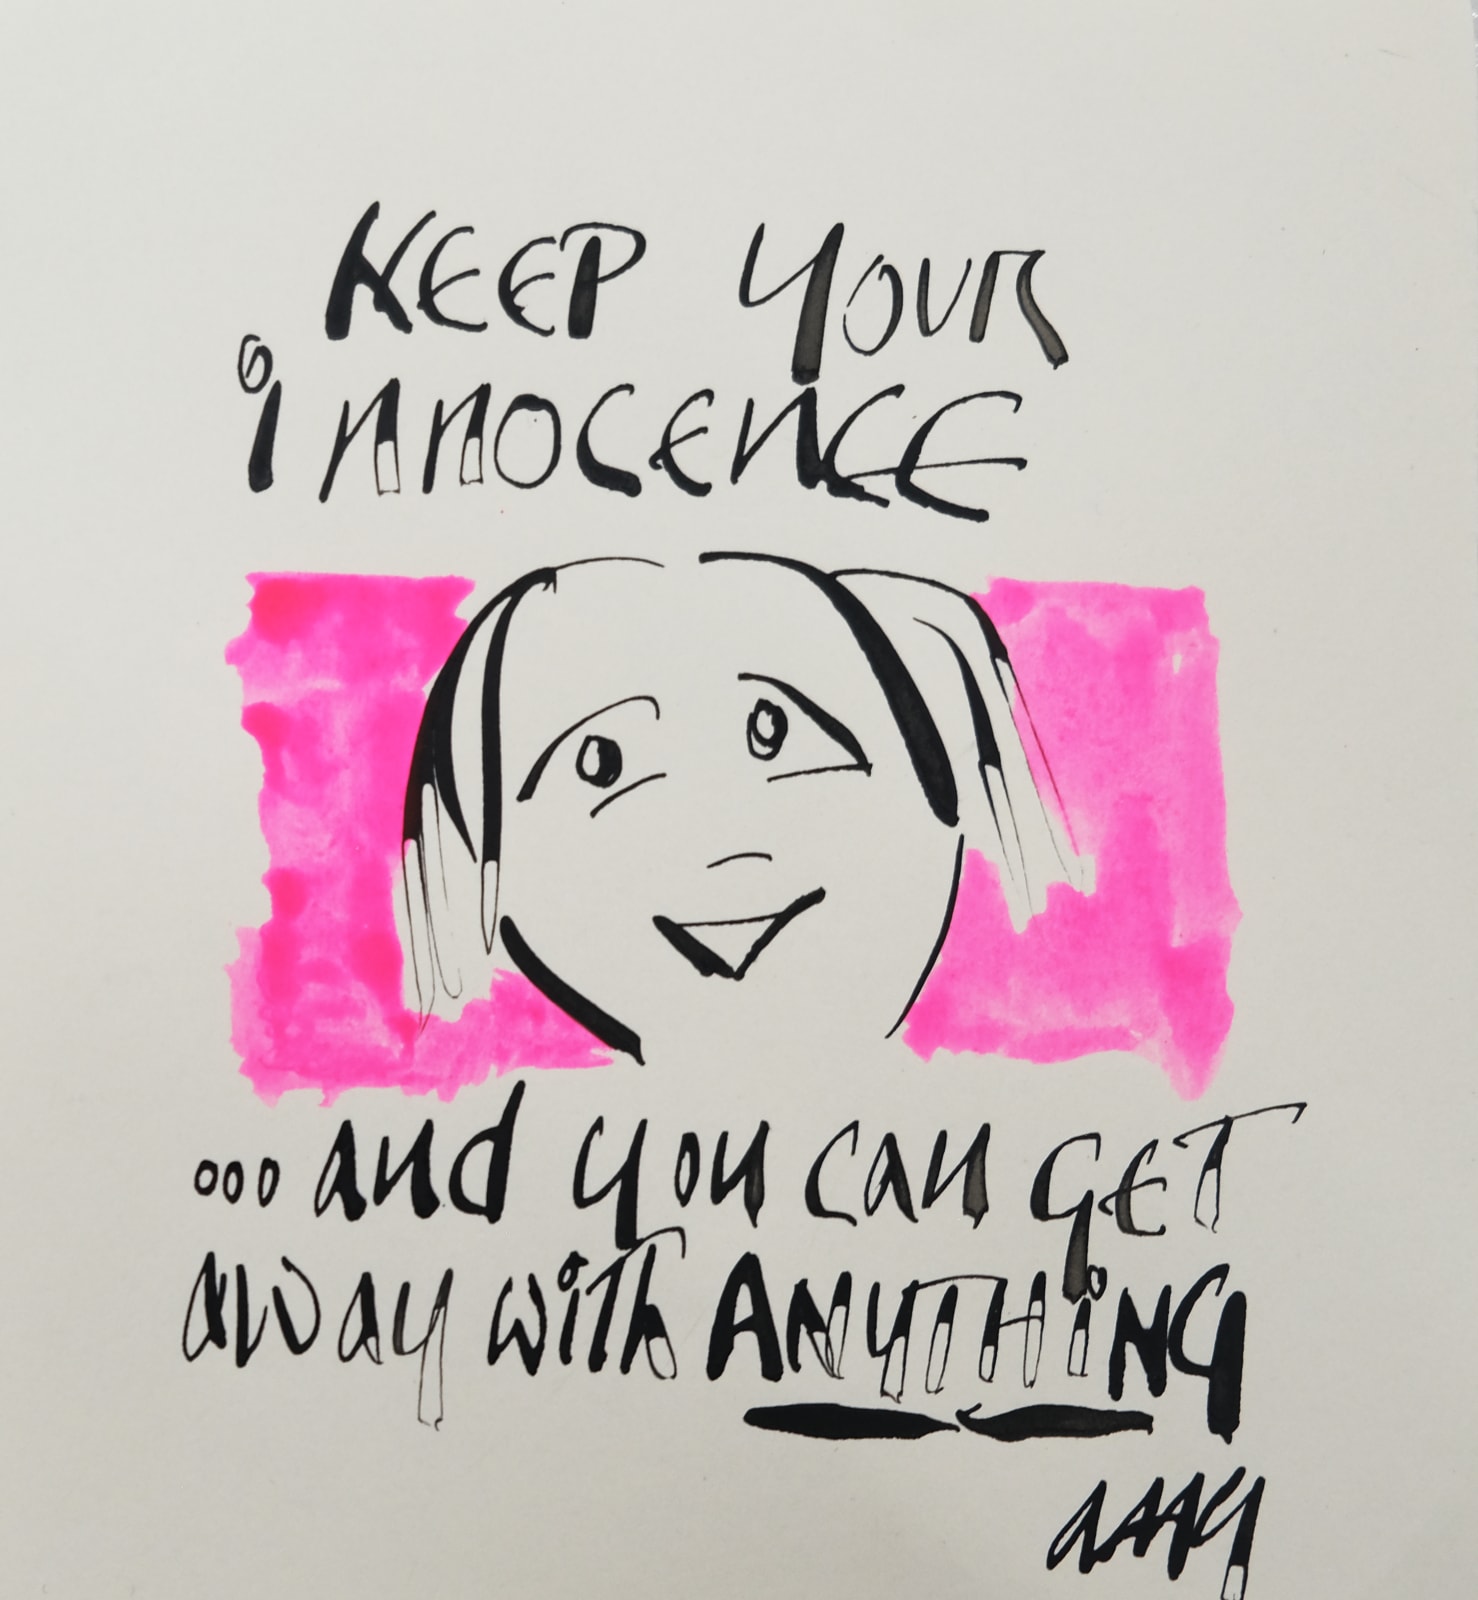 KEEP YOUR
iNNOCENCE
...and you can GET
away with ANYTHiNG